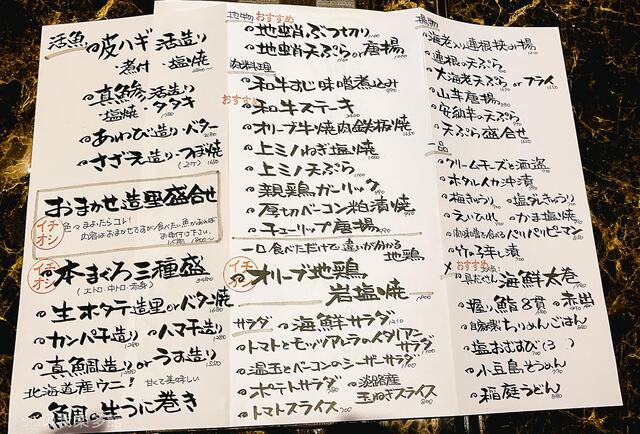 活魚
皮ハギ 活造り
煮付・塩焼
真鯵 活造り
塩焼・タタキ
あわび造り・バター
さざえ造り・つぼ焼
おまかせ造里盛合せ
イチオシ
色々まよったらコレ!
イチオシ
本まぐろ三種盛
(大トロ・中トロ・赤身)
生ホタテ造里orバター焼
カンパチ造り
ハマチ造り
真鯛造りorうす造り
北海道産ウニ! 甘くて美味しい
鯛の生うに巻き
地物 おすすめ
地蛸ぶつ切り
地蛸天ぷらor唐揚
肉料理
和牛すじ味噌煮込み
おすすめ
和牛ステーキ
オリーブ牛焼肉鉄板焼
上ミノねぎ塩焼
上ミノ天ぷら
親鶏ガーリック
厚切ベーコン粕漬焼
チューリップ唐揚
一口食べただけで違いが分かる
地鶏
イチオシ
オリーブ地鶏
岩塩焼
サラダ
海鮮サラダ
トマトとモッツァレラのイタリアン
サラダ
温玉とベーコンのシーザーサラダ
ポテトサラダ
淡路産
玉ねぎスライス
トマトスライス
揚物
海老入り蓮根挟み揚
蓮根の天ぷら
大海老天ぷらorフライ
山芋唐揚
安納芋の天ぷら
天ぷら盛合せ
一品
クリームチーズと酒盗
ホタルイカ沖漬
梅きゅうり
塩こんぶきゅうり
えいひれ
かま塩焼
肉味噌で食べるパリパリピーマン
おすすめ
海鮮太巻
握り鮨8貫
赤出
自家製ちりめんごはん
塩おむすび(3ヶ)
小豆島そうめん
稲庭うどん